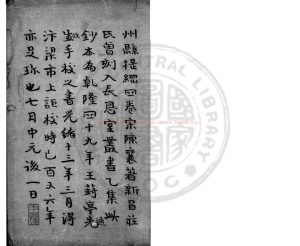 州縣提綱四卷宋陳襄著新昌莊
氏曾刻入長恩室叢書乙集此
鈔本為乾隆四十九年王莳亭先
生手校又書光緒十三年三月得
汴梁市上距校時已百又六年
亦足珍也七月中元後一日